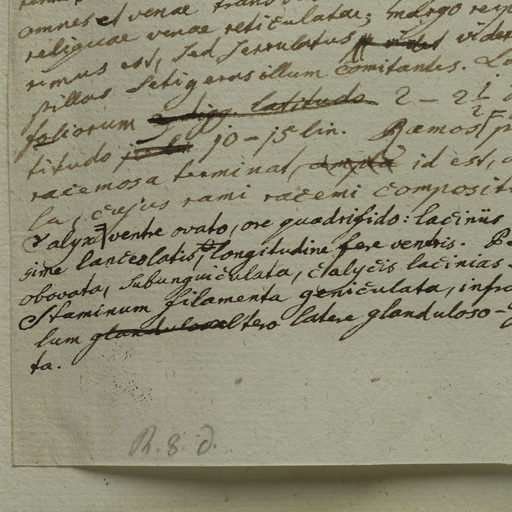 omnes et venae
reliquae venae reticulatae; margo
rimus est, sed serrulatus videt
pillos setigeros illum comitantes.
foliorum 2 – 2 1/2
titudo 10–15 lin. Ramos
racemosa terminat, id est,
la, cujus rami racemi composit
Calyx ventre ovato, ore quadrifido: laciniis
sime lanceolatis, longitudine fere ventris.
obovata, subunguiculata, Calycis lacinias
Staminum filamenta geniculata, infra
lum glandulosa altero latere glanduloso-
ta.
R. 8. d.